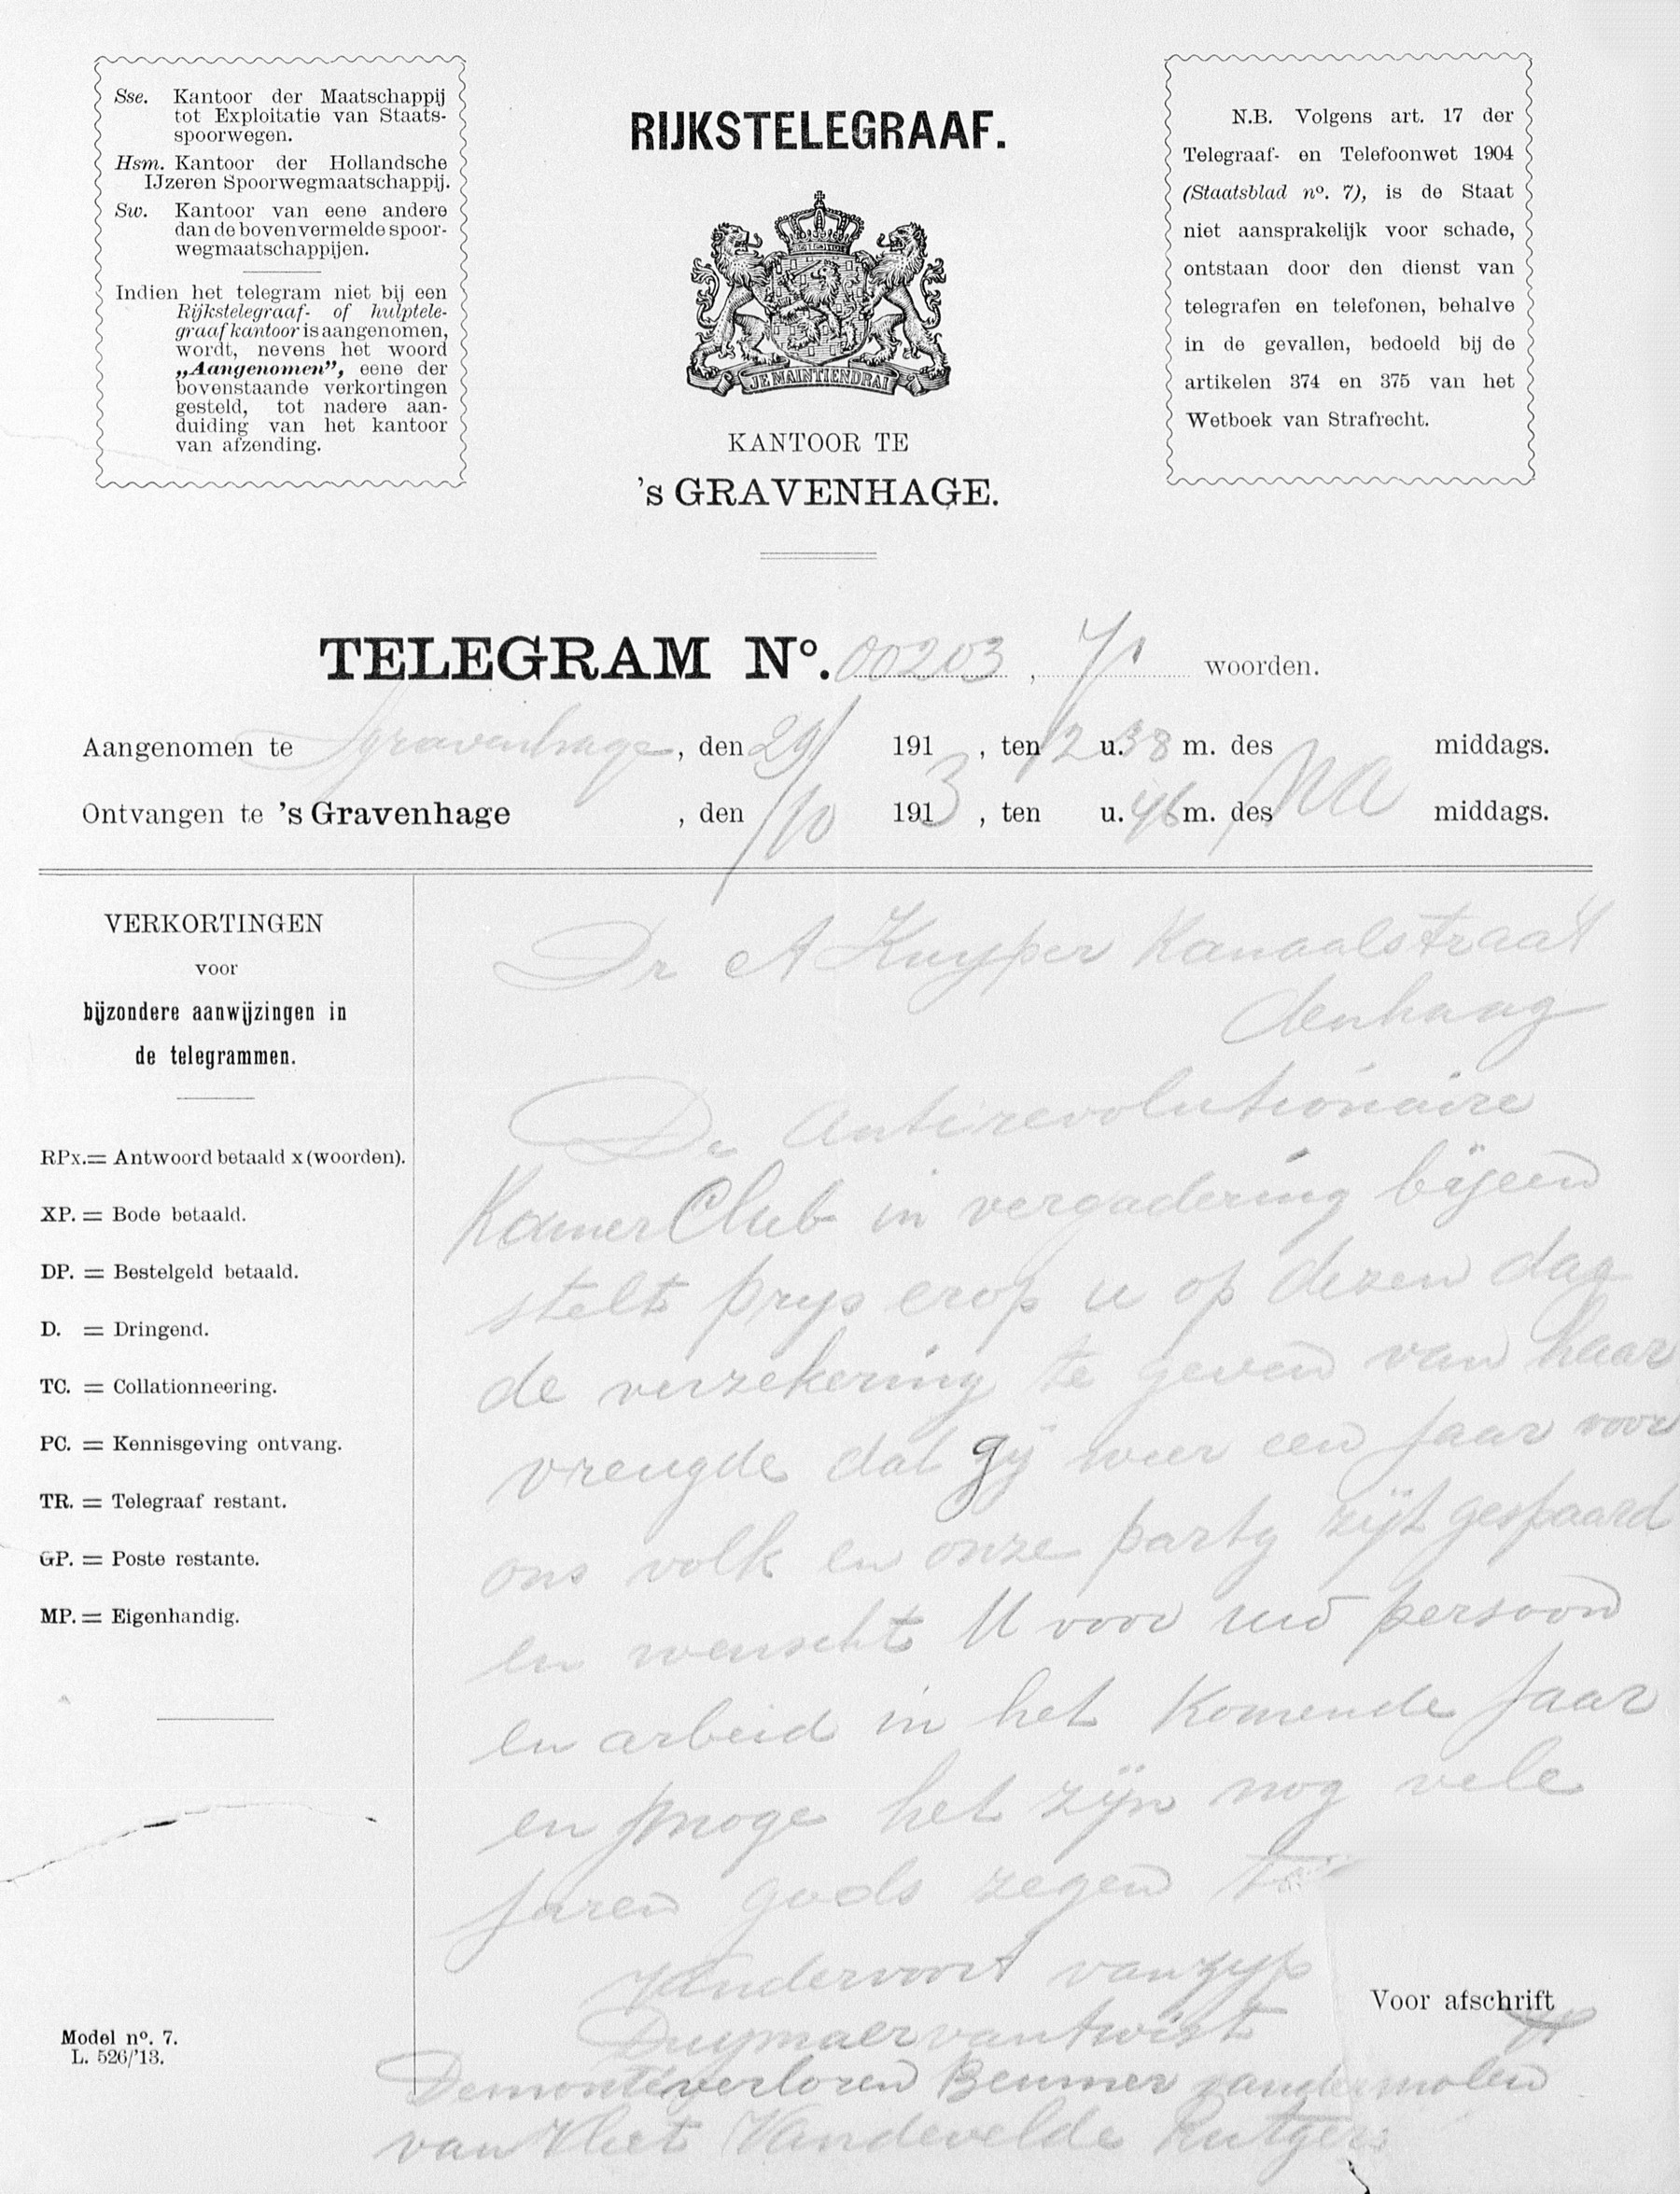 Sse. Kantoor der Maatschappij
tot Exploitatie van Staats-
spoorwegen.
Hsm. Kantoor der Hollandsche
IJzeren Spoorwegmaatschappij.
Sw. Kantoor van eene andere
dan de bovenvermelde spoor-
wegmaatschappijen.
Indien het telegram niet bij een
Rijkstelegraaf- of hulptele-
graafkantoor is aangenomen,
wordt, nevens het woord
„Aangenomen”, eene der
bovenstaande verkortingen
gesteld, tot nadere aan-
duiding van het kantoor
van afzending.
RIJKSTELEGRAAF.
JE MAINTIENDRAI
KANTOOR TE
's GRAVENHAGE.
N.B. Volgens art. 17 der
Telegraaf- en Telefoonwet 1904
(Staatsblad no. 7), is de Staat
niet aansprakelijk voor schade,
ontstaan door den dienst van
telegrafen en telefonen, behalve
in de gevallen, bedoeld bij de
artikelen 374 en 375 van het
Wetboek van Strafrecht.
TELEGRAM No. 00203, 71 woorden.
Aangenomen te Sgravenhage, den 29/ 191 , ten 12 u. 38 m. des middags.
Ontvangen te 's Gravenhage , den /10 1913, ten u. 46 m. des NA middags.
VERKORTINGEN
voor
bijzondere aanwijzingen in
de telegrammen.
RPx. = Antwoord betaald x (woorden).
XP. = Bode betaald.
DP. = Bestelgeld betaald.
D. = Dringend.
TC. = Collationneering.
PC. = Kennisgeving ontvang.
TR. = Telegraaf restant.
GP. = Poste restante.
MP. = Eigenhandig.
Model no. 7.
L. 526/'13.
Dr A Kuyper Kanaalstraat
denhaag
De antirevolutionaire
Kamer Club in vergadering bijeen
stelt prys erop u op dezen dag
de verzekering te geven van haar
vreugde dat gij weer een jaar voor
ons volk en onze party zijt gespaard
en wenscht U voor uw persoon
en arbeid in het komende jaar
en moge het zijn nog vele
jaren gods zegen toe
Vandervoort vanzyp
Duymaer vantwist
Demonteverloren Beumer vandermolen
van Vliet Vandevelde Rutgers
Voor afschrift